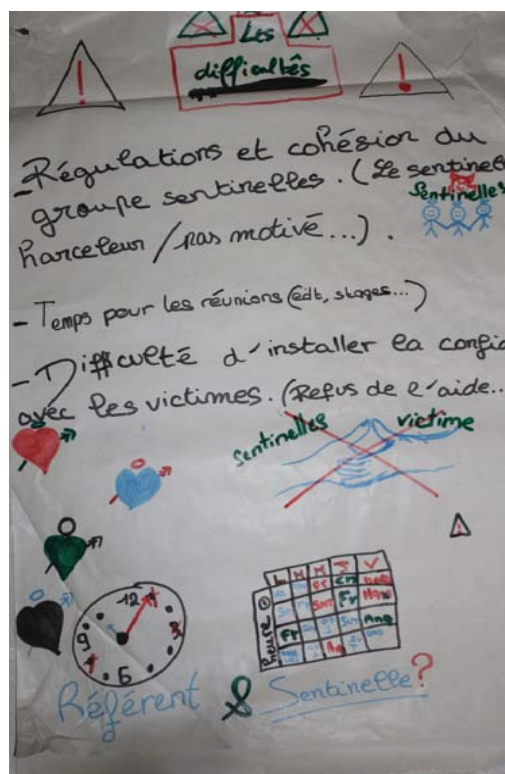 Les
difficultés
- Régulations et cohésion du
groupe sentinelles. (Le sentinelle
harceleur / pas motivé...).
Sentinelles
- Temps pour les réunions (edt, stages...)
- Difficulté d'installer la confia
avec les victimes. (Refus de l'aide..
sentinelles victime
12
L M M J V
heure
Référent & Sentinelle?